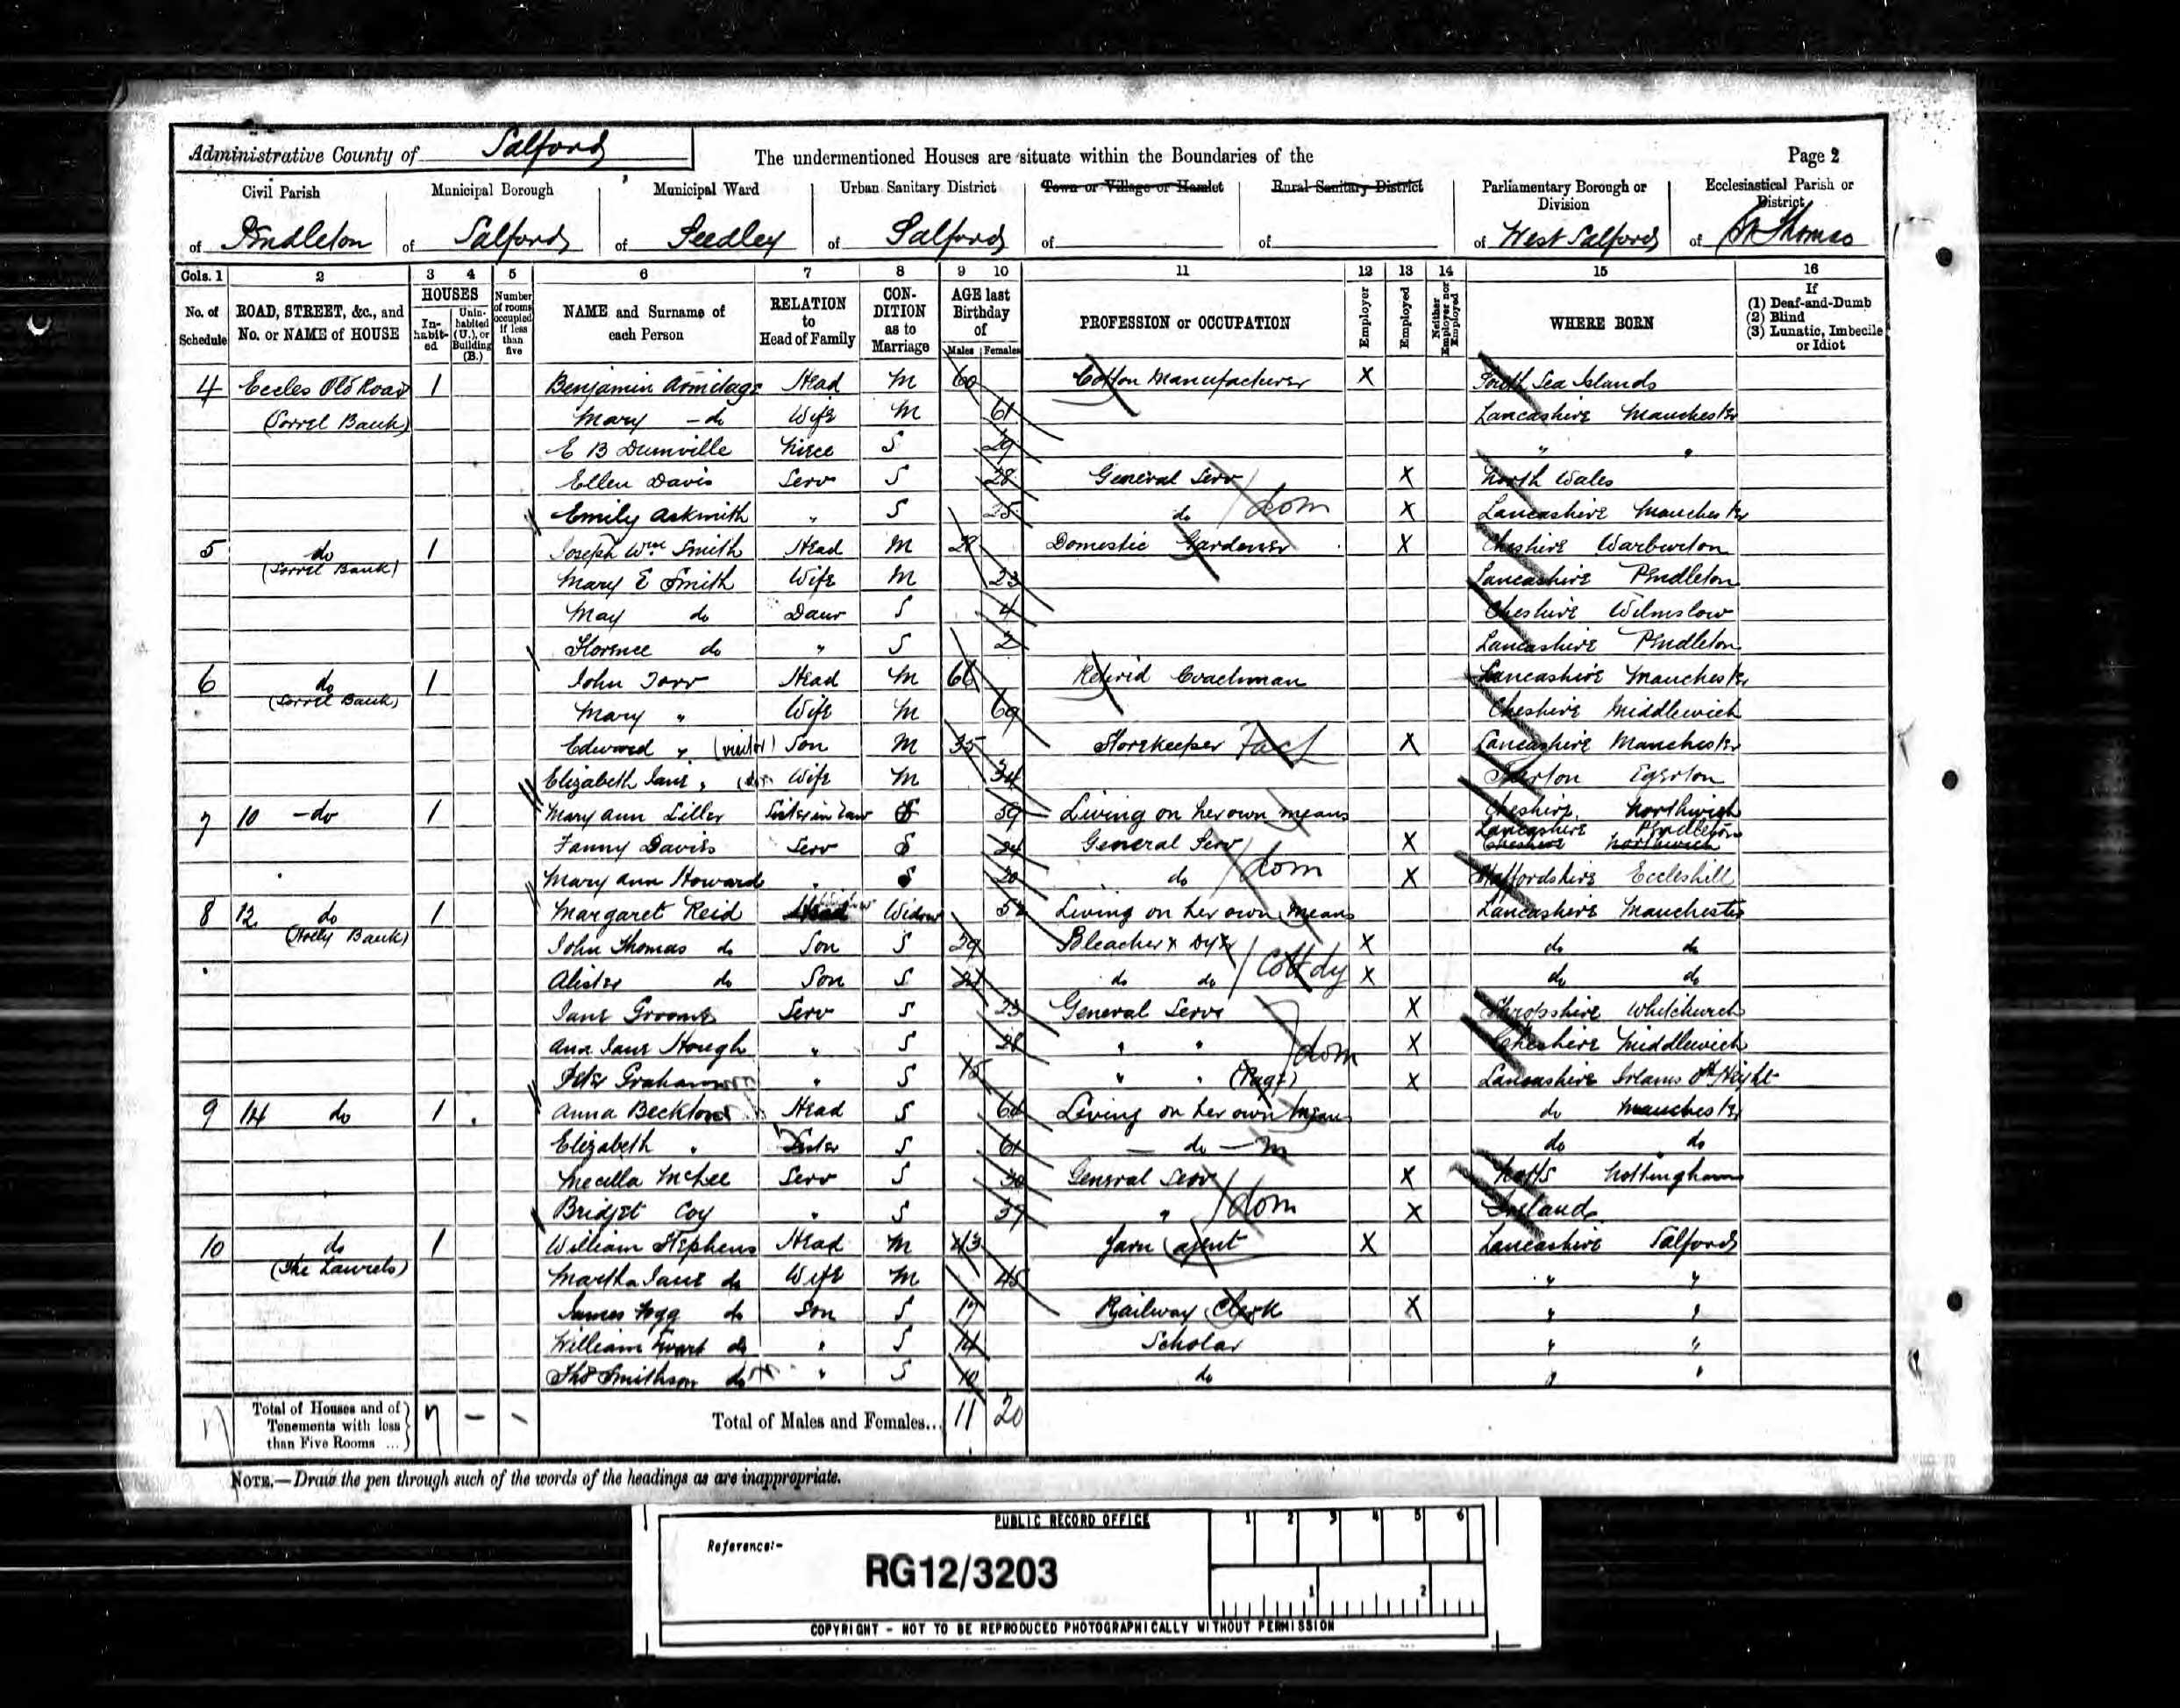 Administrative County of Salford
The undermentioned Houses are situate within the Boundaries of the
Page 2
Civil Parish of Pendleton
Municipal Borough of Salford
Municipal Ward of Seedley
Urban Sanitary District of Salford
Town or Village or Hamlet of
Rural Sanitary District of
Parliamentary Borough or Division of West Salford
Ecclesiastical Parish or District of St Thomas
Cols. 1 2 3 4 5 6 7 8 9 10 11 12 13 14 15 16
No. of Schedule
ROAD, STREET, &c., and No. or NAME of HOUSE
HOUSES
In-habit-ed
Unin-habited (U.), or Building (B.)
Number of rooms occupied if less than five
NAME and Surname of each Person
RELATION to Head of Family
CON-DITION as to Marriage
AGE last Birthday of
Males Females
PROFESSION or OCCUPATION
Employer
Employed
Neither Employer nor Employed
WHERE BORN
If
(1) Deaf-and-Dumb
(2) Blind
(3) Lunatic, Imbecile or Idiot
4 Eccles Old Road 1 Benjamin Armitage Head M 60 Cotton Manufacturer X South Sea Islands
(Sorrel Bank) Mary do Wife M 61 Lancashire Manchester
E B Dumville Niece S 29 " "
Ellen Davis Serv S 28 General Serv dom X North Wales
Emily Askmith " S 25 do X Lancashire Manchester
5 do (Sorrel Bank) 1 Joseph Wm Smith Head M 28 Domestic Gardener X Cheshire Warburton
Mary E Smith Wife M 23 Lancashire Pendleton
May do Daur S 4 Cheshire Wilmslow
Florence do " S 2 Lancashire Pendleton
6 do (Sorrel Bank) 1 John Torr Head M 66 Retired Coachman Lancashire Manchester
Mary " Wife M 69 Cheshire Middlewich
Edward " (visitor) Son M 35 Storekeeper X Lancashire Manchester
Elizabeth Jane " Wife M 34 Egerton
7 10 do 1 Mary Ann Liller Sister in law S 59 Living on her own means Cheshire Northwich
Fanny Davies Serv S 24 General Serv dom X Lancashire Pendleton
Cheshire Northwich
Mary Ann Howard " S 20 do X Staffordshire Eccleshill
8 12 do 1 Margaret Reid Head Widow Living on her own means Lancashire Manchester
(Holly Bank) John Thomas do Son S 29 Bleacher & Dyer Cott dy X do do
Alister do Son S do do X do do
Jane Groome Serv S 23 General Serv X Shropshire Whitchurch
Ann Jane Hough " S 28 " " dom X Cheshire Middlewich
Peter Graham " S 15 " " (Page) X Lancashire Irlams oth Height
9 14 do 1 Anna Beckton Head S Living on her own means do Manchester
Elizabeth " Sister S 61 do do do
McLee Serv S 30 General Serv dom X Notts Nottingham
Bridget Coy " S 39 " X Ireland
10 do 1 William Stephens Head M 43 Yarn agent X Lancashire Salford
(The Laurels) Martha Jane do Wife M 45 " "
James do Son S 17 Railway Clerk X " "
William Ewart do " S 14 Scholar " "
Thos Smithson do " S 10 do " "
Total of Houses and of Tenements with less than Five Rooms ... 7 – –
Total of Males and Females... 11 20
NOTE.—Draw the pen through such of the words of the headings as are inappropriate.
PUBLIC RECORD OFFICE
Reference:-
RG12/3203
1 2 3 4 5 6
1 2
COPYRIGHT - NOT TO BE REPRODUCED PHOTOGRAPHICALLY WITHOUT PERMISSION